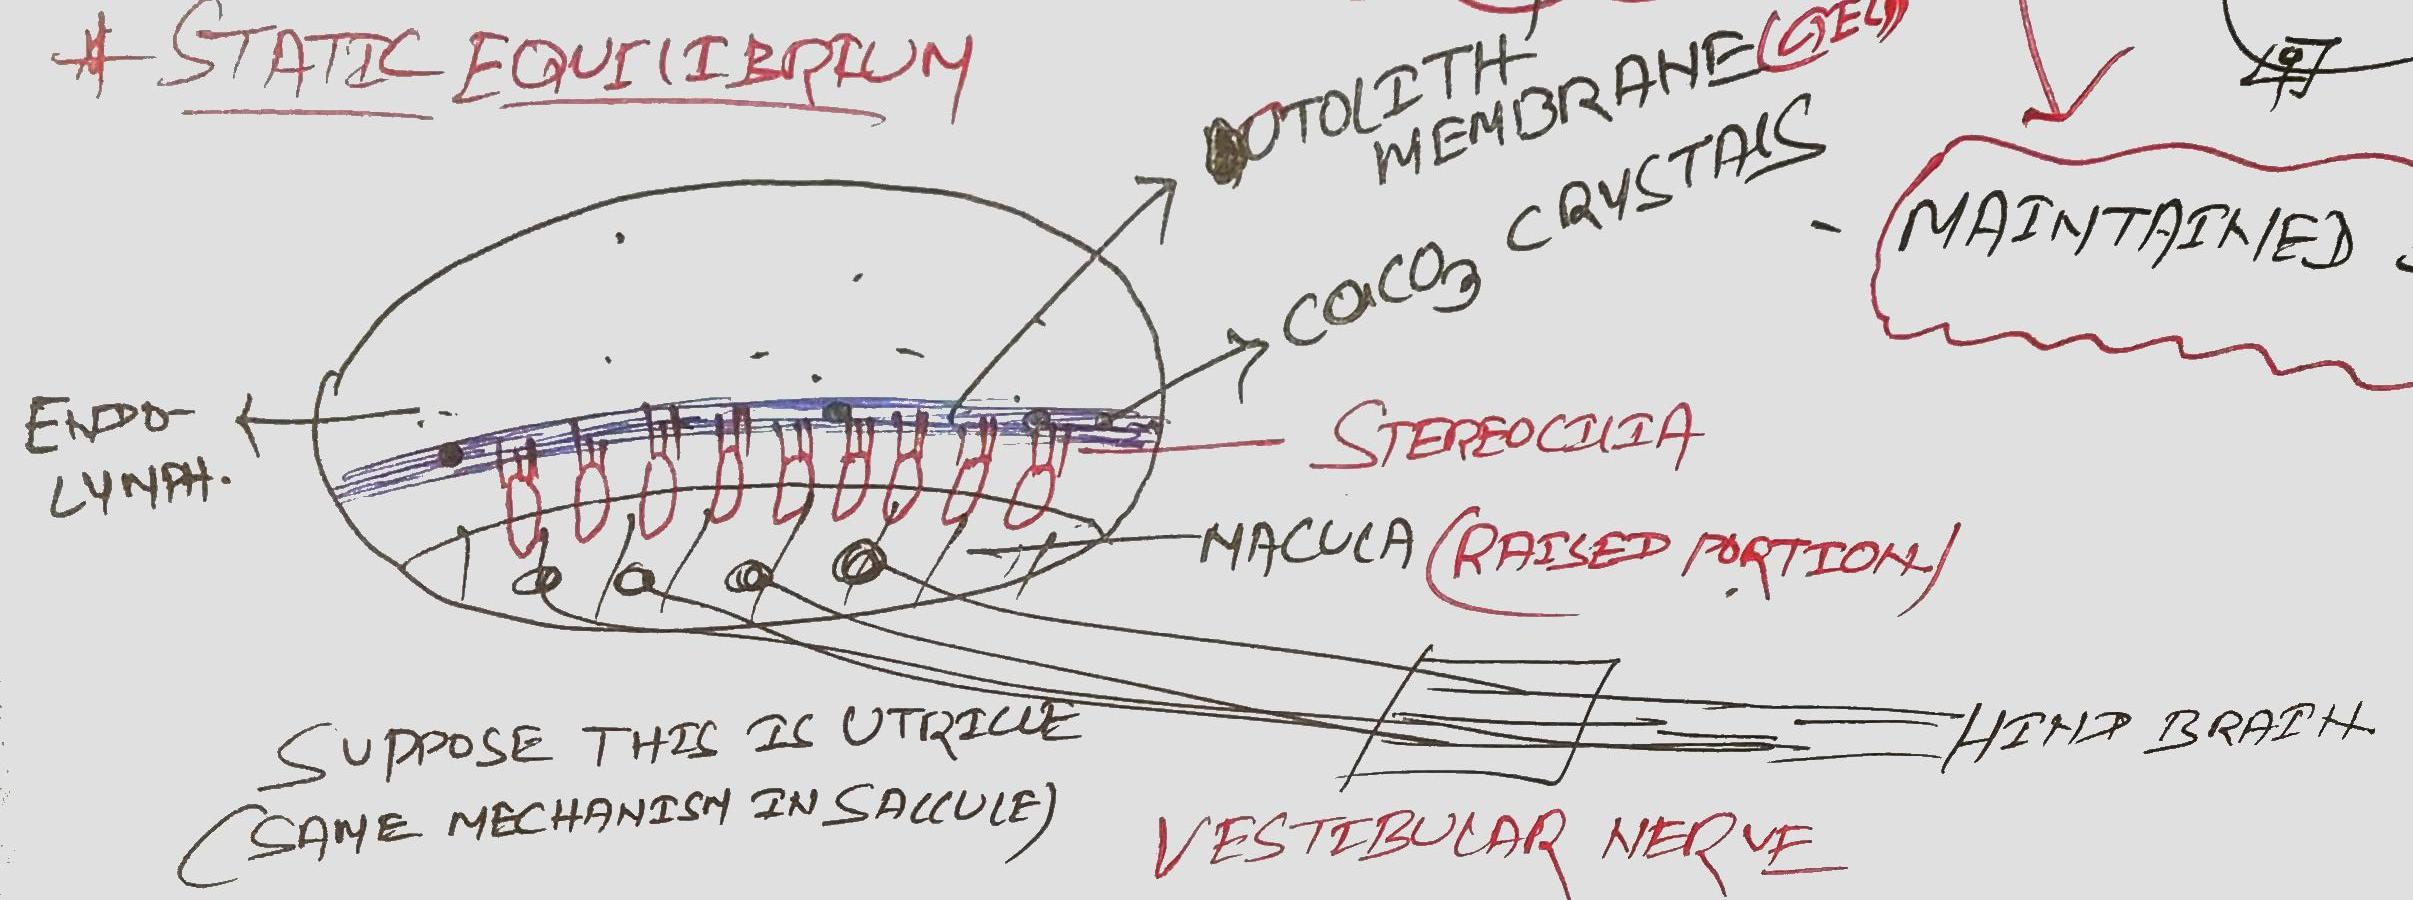 # STATIC EQUILIBRIUM
OTOLITH
MEMBRANE (GEL)
CaCO3 CRYSTALS
- MAINTAINED
ENDO-
LYMPH.
STEREOCILIA
MACULA (RAISED PORTION)
HIND BRAIN
SUPPOSE THIS IS UTRICLE
(SAME MECHANISM IN SACCULE)
VESTIBULAR NERVE